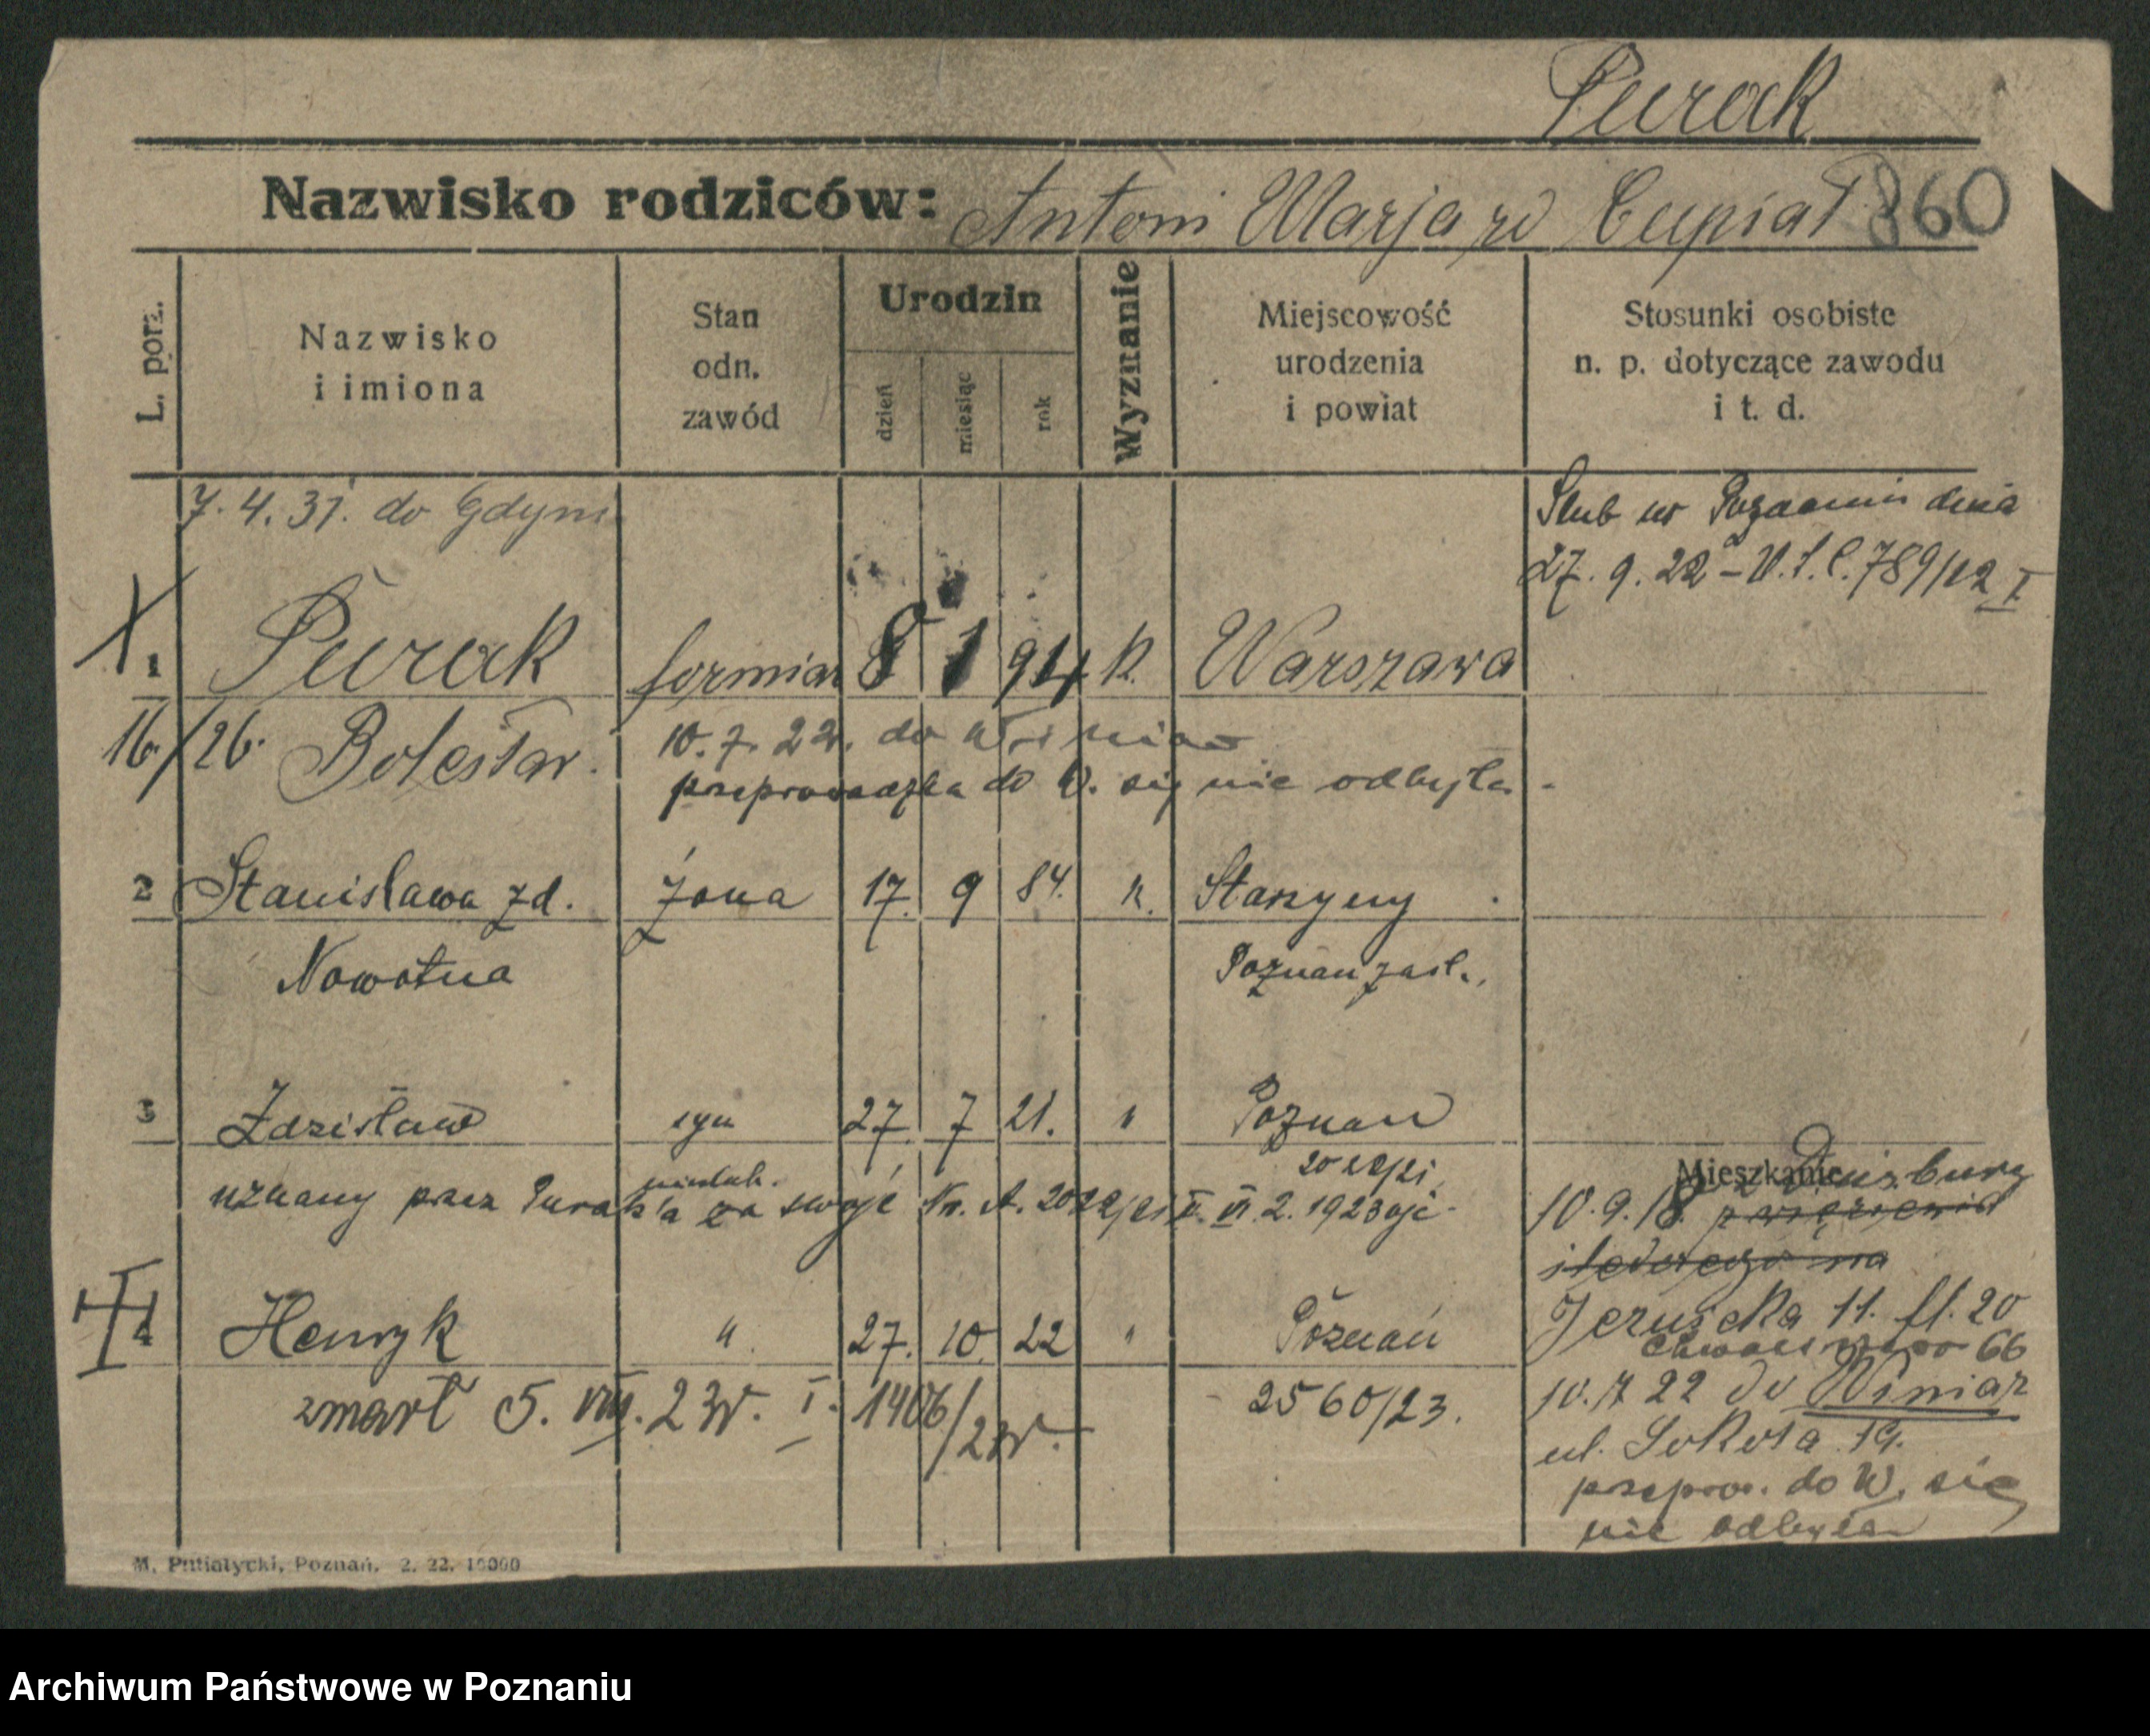 Purak
Nazwisko rodziców: Antoni Marja zd Cupiał 860
L. porz.
Nazwisko
i imiona
Stan
odn.
zawód
Urodzin
dzień
miesiąc
rok
Wyznanie
Miejscowość
urodzenia
i powiat
Stosunki osobiste
n. p. dotyczące zawodu
i t. d.
7. 4. 31. do Gdyni
Ślub w Poznaniu dnia
27. 9. 22 - U.S.C. 789/22 I
1 Purak formiarz 8 1 94 k. Warszawa
16/26. Bolesław 10. 7. 22. do Winiar
przeprowadzka do W. się nie odbyła.
2 Stanisława zd. żona 17. 9 84. k. Starzyny
Nowotna Poznań zach.
3 Zdzisław syn 27. 7 21. " Poznań
nieślub. 2022/21
uznany przez Puraka za swoje Nr. A. 2022/21 II. VI. 2. 1923
Mieszkanie
10. 9. 18. z Duisburg
z więzienia
śledczego na
4 Henryk " 27. 10. 22 " Poznań
Jeżycka 11. 20
66
zmarł 5. VIII. 23r. I. 1406/23r. 2560/23.
10. 7 22 do Winiar
ul. Sokoła 19.
przeprow. do W. się
nie odbyła
M. Putiatycki, Poznań. 2. 22. 10000
Archiwum Państwowe w Poznaniu